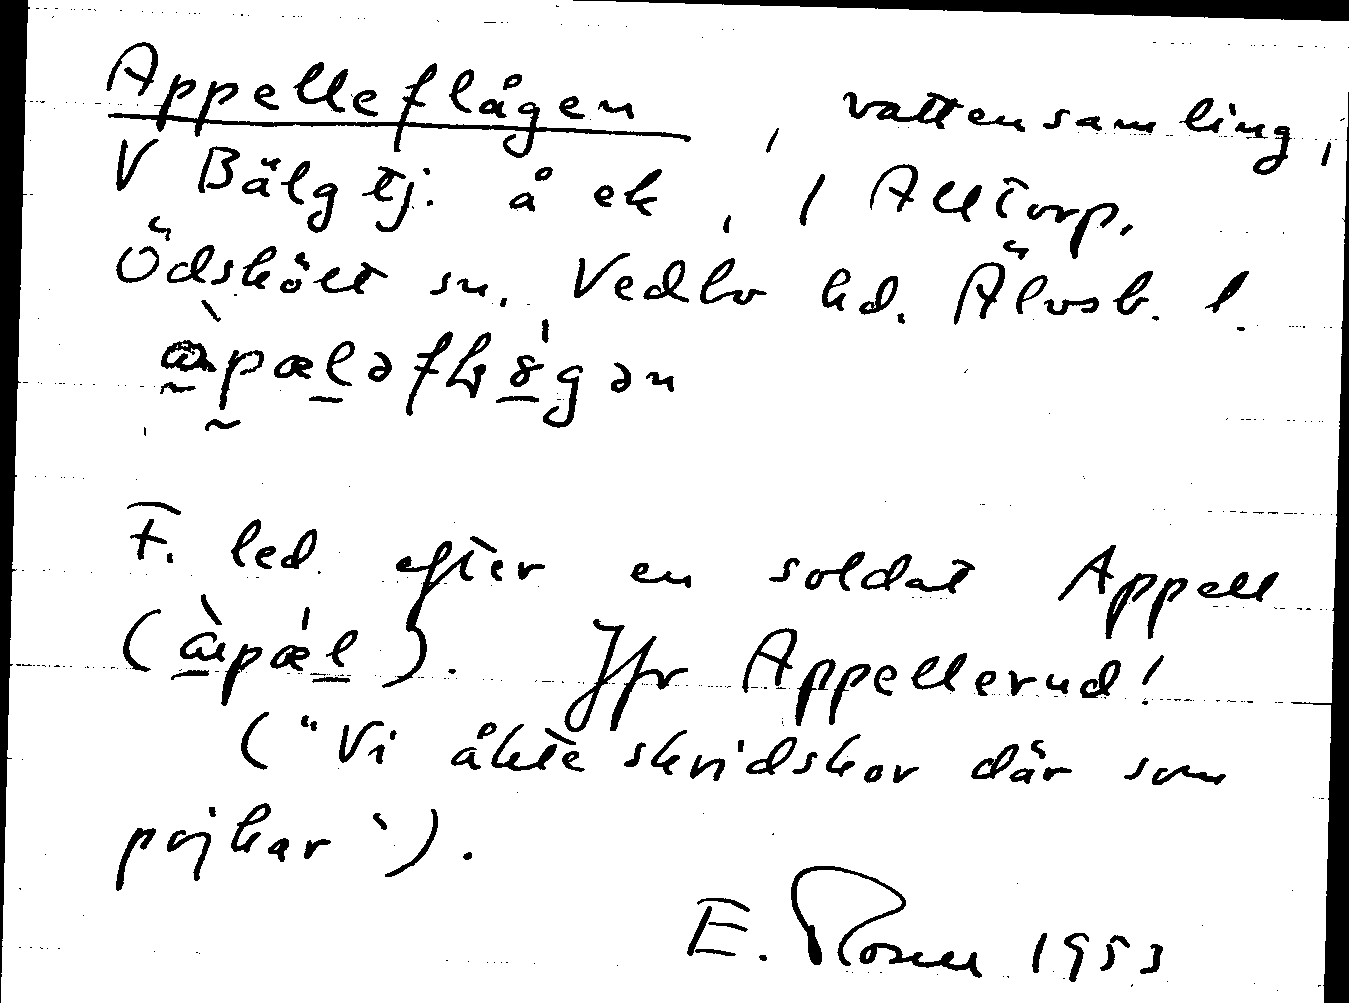 Appelleflågen, vattensamling,
V Bälgtj. å ek, / Alltorp,
Ödskölt sn, Vedbo hd. Älvsb. l.
F. led efter en soldat Appell
Jfr Appellerud!
("Vi åkte skridskor där som
pojkar").
E. 1953